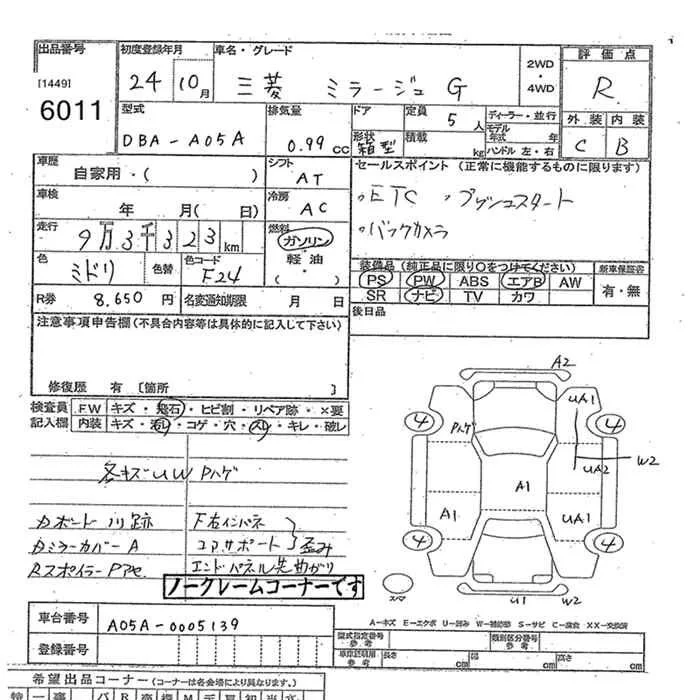 出品番号 初度登録年月 車名・グレード 2WD・4WD 評価点
[1449] 24 10月 三菱 ミラージュ G R
6011
型式 排気量 ドア 定員 5人 ディーラー・並行 外装 内装
DBA-A05A 0.99CC 形状 箱型 積載 kg モデル年式 年 ハンドル 左・右 C B
車歴 自家用・( ) シフト AT セールスポイント(正常に機能するものに限ります)
車検 年 月( 日) 冷房 AC ・ETC ・プッシュスタート
走行 9万3千323km 燃料 ガソリン・軽油・( ) ・バックカメラ
色 ミドリ 色替 色コード F24 装備品(純正品に限り○をつけてください) 新車保証書
PS PW ABS エアB AW 有・無
R券 8,650円 名変通知期限 月 日 SR ナビ TV カワ
注意事項申告欄(不具合内容等は具体的に記入して下さい) 後日品
修復歴 有 [箇所 ]
検査員 FW キズ・飛石・ヒビ割・リペア跡・×要
記入欄 内装 キズ・汚レ・コゲ・穴・スレ・キレ・破レ
各キズUWPハゲ
ダボード川跡 F右インパネ
Dミラーカバー A コアサポート 歪み
Rスポイラー Pアセ エンドパネル先曲がり
ノークレームコーナーです
A2
UA1
4 Pハゲ 4
UA2 W2
A1
A1 UA1
4 4
スペア U1 W2
A-キズ E-エクボ U-凹み W-補修跡 S-サビ C-腐食 XX-交換済
車台番号 A05A-0005139
登録番号
型式指定番号 参考 類別区分番号 参考
車庫証明用 参考 長さ cm 巾 cm 高さ cm
希望出品コーナー(コーナーは各会場により異なります。)